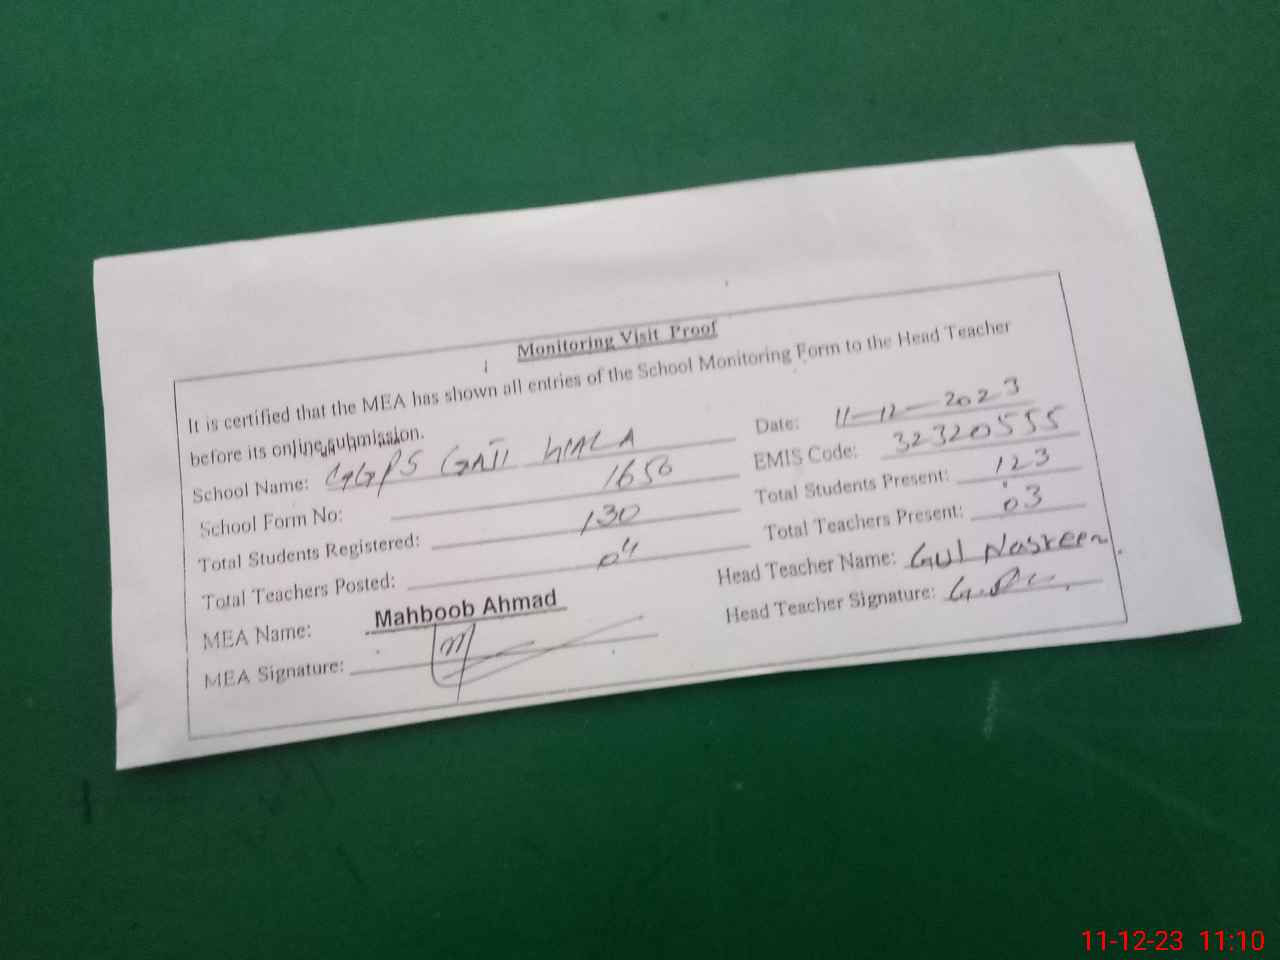 Monitoring Visit Proof
It is certified that the MEA has shown all entries of the School Monitoring Form to the Head Teacher
before its online submission.
Date: 11-12-2023
School Name: GGPS GAJI WALA
EMIS Code: 32320555
School Form No: 1650
Total Students Present: 123
Total Students Registered: 130
Total Teachers Present: 03
Total Teachers Posted: 04
Head Teacher Name: Gul Nasreen
MEA Name: Mahboob Ahmad
Head Teacher Signature:
MEA Signature:
11-12-23 11:10